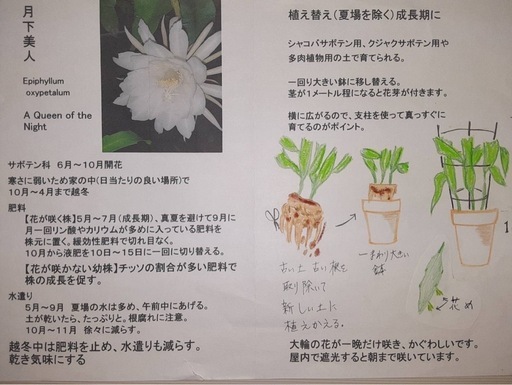 月下美人
Epiphyllum
oxypetalum
A Queen of the
Night
サボテン科 6月～10月開花
寒さに弱いため家の中(日当たりの良い場所)で
10月～4月まで越冬
肥料
【花が咲く株】5月～7月(成長期)、真夏を避けて9月に
月一回リン酸やカリウムが多めに入っている肥料を
株元に置く。緩効性肥料で切れ目なく。
10月から液肥を10日～15日に一回に切り替える。
【花が咲かない幼株】チッソの割合が多い肥料で
株の成長を促す。
水遣り
5月～9月 夏場の水は多め、午前中にあげる。
土が乾いたら、たっぷりと。根腐れに注意。
10月～11月 徐々に減らす。
越冬中は肥料を止め、水遣りも減らす。
乾き気味にする
植え替え(夏場を除く)成長期に
シャコバサボテン用、クジャクサボテン用や
多肉植物用の土で育てられる。
一回り大きい鉢に移し替える。
茎が1メートル程になると花芽が付きます。
横に広がるので、支柱を使って真っすぐに
育てるのがポイント。
古い土 古い根を
取り除いて
新しい土に
植えかえる。
一まわり大きい
鉢
花め
1
大輪の花が一晩だけ咲き、かぐわしいです。
屋内で遮光すると朝まで咲いています。